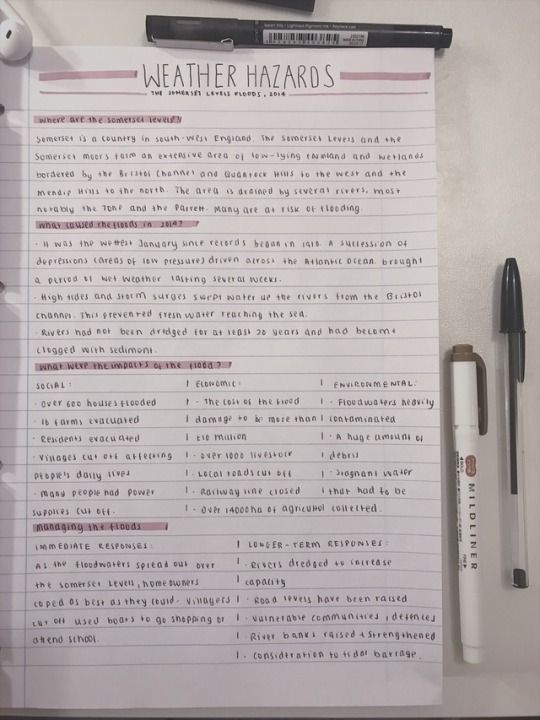 WEATHER HAZARDS
THE SOMERSET LEVELS FLOODS, 2014
where are the somerset levels?
Somerset is a country in south-west England. The Somerset Levels and the
Somerset moors form an extensive area of low-lying farmland and wetlands
bordered by the Bristol Channel and Quantock Hills to the west and the
mendip Hills to the north. The area is drained by several rivers, most
notably the Tone and the Parrett. Many are at risk of flooding.
what caused the floods in 2014?
· It was the wettest January since records began in 1910. A succession of
depressions (areas of low pressure) driven across the Atlantic Ocean, brought
a period of wet weather lasting several weeks.
· High tides and storm surges swept water up the rivers from the Bristol
channel. This prevented fresh water reaching the sea.
· Rivers had not been dredged for at least 20 years and had become
clogged with sediment.
what were the impacts of the flood?
SOCIAL:
· Over 600 houses flooded
· 16 farms evacuated
· Residents evacuated
· Villages cut off affecting
people's daily lives
· Many people had power
supplies cut off.
ECONOMIC:
· The cost of the flood
damage to be more than
£10 million
· Over 1000 livestock
· Local roads cut off
· Railway line closed
· Over 14000ha of agricultol
ENVIRONMENTAL:
· Floodwaters heavily
contaminated
· A huge amount of
debris
· Stagnant water
that had to be
collected.
managing the floods
IMMEDIATE RESPONSES:
As the floodwaters spread out over
the Somerset Level, homeowners
coped as best as they could. Villagers
cut off used boats to go shopping or
attend school.
LONGER-TERM RESPONSES:
· Rivers dredged to increase
capacity
· Road levels have been raised
· Vulnerable communities, defences
· River banks raised + strengthened
· Considtration to tidal barrage.
MILDLINER